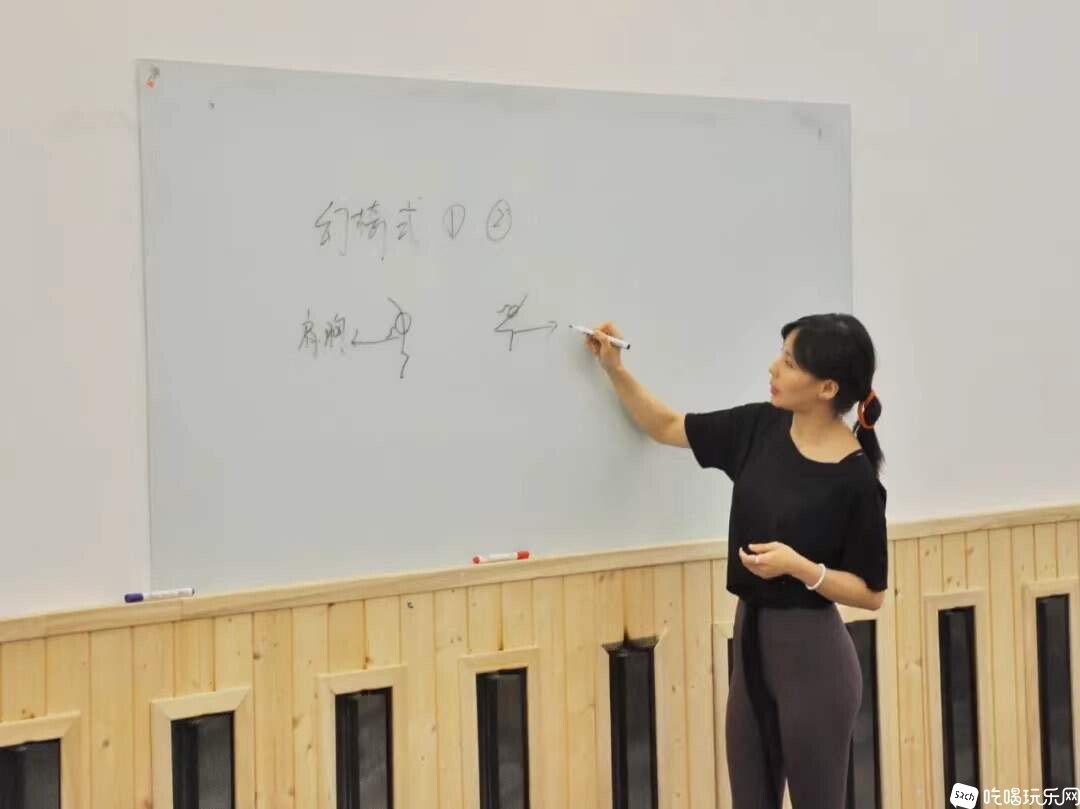 幻椅式 ① ②
肩胸
52ch 吃喝玩乐网